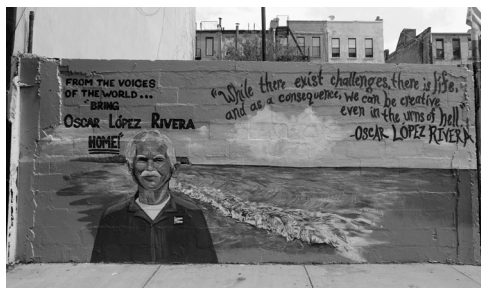 FROM THE VOICES
OF THE WORLD...
BRING
OSCAR LÓPEZ RIVERA
HOME!
"While there exist challenges, there is life,
and as a consequence, we can be creative
even in the urns of hell"
-OSCAR LÓPEZ RIVERA